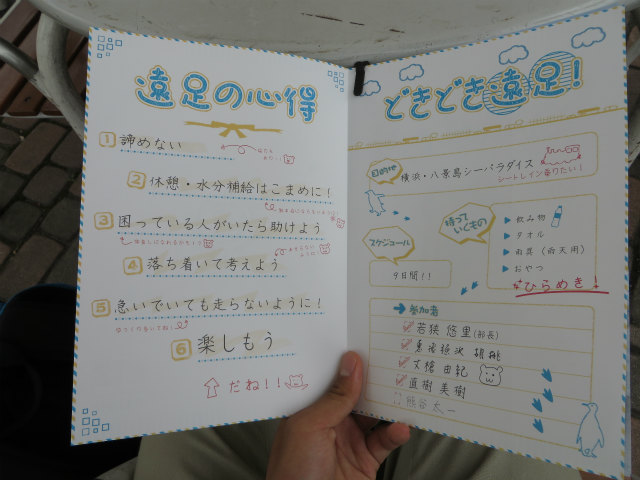 遠足の心得
1 諦めない
2 休憩・水分補給はこまめに！
3 困っている人がいたら助けよう
4 落ち着いて考えよう
5 急いでいても走らないように！
ゆっくり歩いてね！
6 楽しもう
だね！！
どきどき遠足！
目的地
横浜・八景島シーパラダイス
シートレイン乗りたい！
スケジュール
9日間！！
持っていくもの
飲み物
タオル
雨具（雨天用）
おやつ
ひらめき！
参加者
若狭 悠里(部長)
恵飛須沢 胡桃
丈槍 由紀
直樹 美樹
熊谷 太一